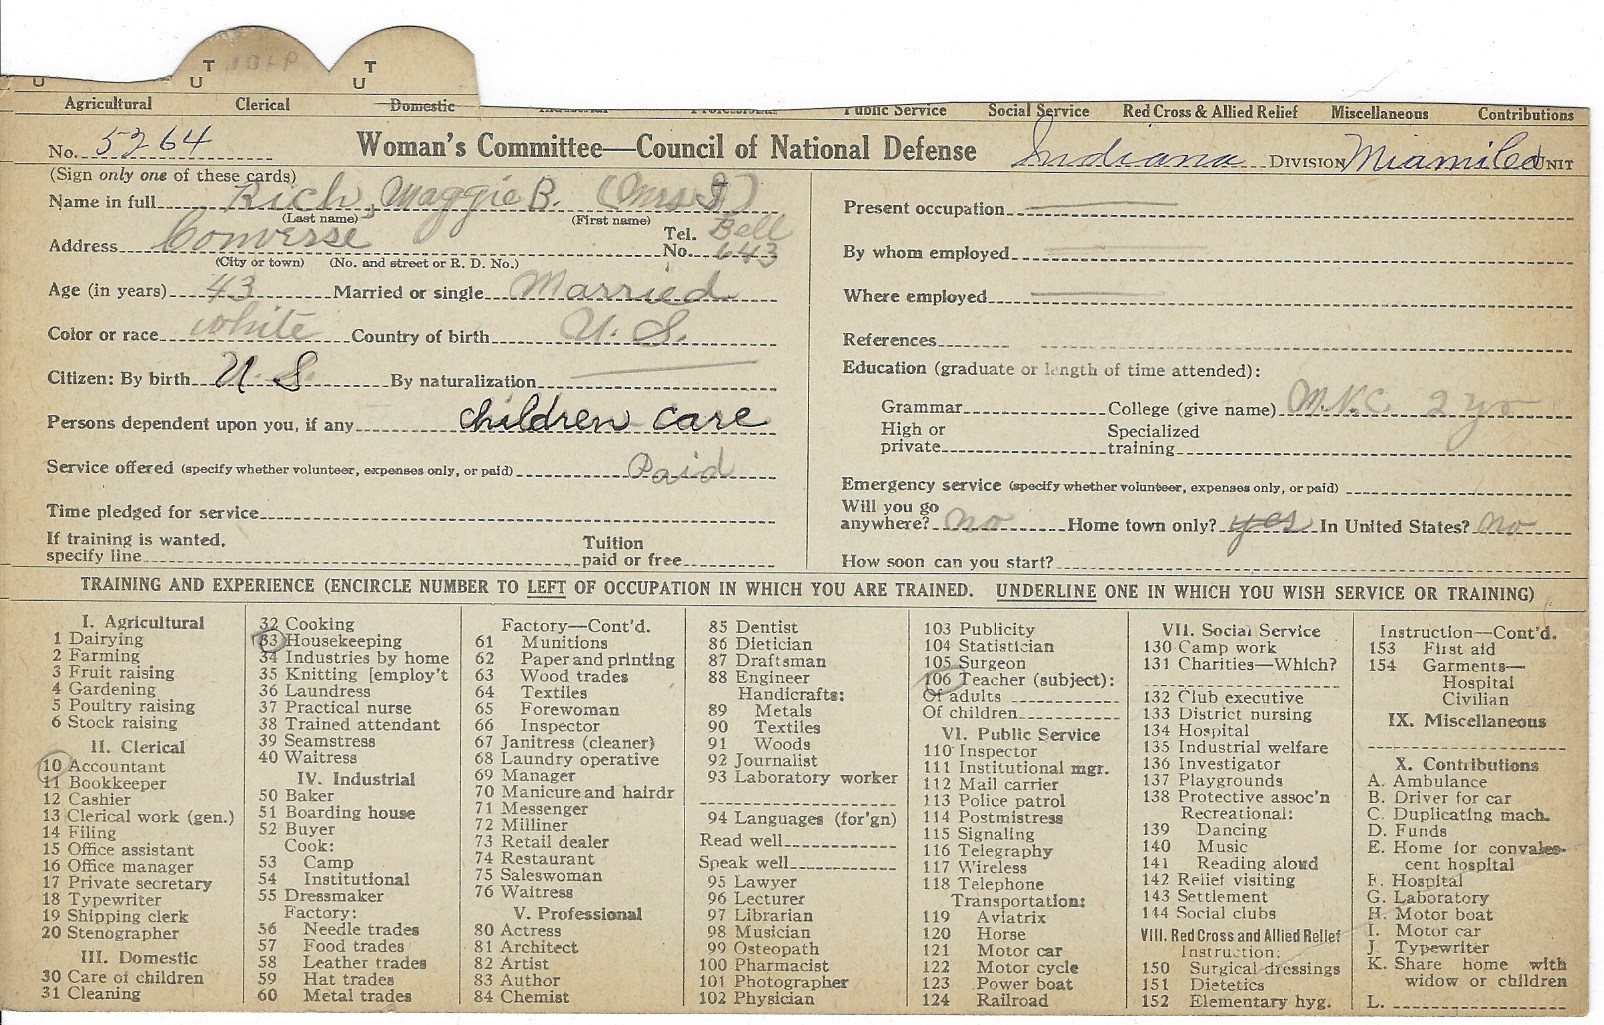 U T U T U
Agricultural Clerical Domestic Industrial Professional Public Service Social Service Red Cross & Allied Relief Miscellaneous Contributions
No. 5264 Woman's Committee—Council of National Defense Indiana DIVISION Miami Co UNIT
(Sign only one of these cards)
Name in full Rich, Maggie B. (Mrs J)
(Last name) (First name)
Address Converse Tel. No. Bell 643
(City or town) (No. and street or R. D. No.)
Age (in years) 43 Married or single Married
Color or race white Country of birth U. S.
Citizen: By birth U S By naturalization
Persons dependent upon you, if any children care
Service offered (specify whether volunteer, expenses only, or paid) Paid
Time pledged for service
If training is wanted, specify line Tuition paid or free
Present occupation
By whom employed
Where employed
References
Education (graduate or length of time attended):
Grammar College (give name) M.N.C. 2 yr
High or private Specialized training
Emergency service (specify whether volunteer, expenses only, or paid)
Will you go anywhere? no Home town only? yes In United States? no
How soon can you start?
TRAINING AND EXPERIENCE (ENCIRCLE NUMBER TO LEFT OF OCCUPATION IN WHICH YOU ARE TRAINED. UNDERLINE ONE IN WHICH YOU WISH SERVICE OR TRAINING)
I. Agricultural
1 Dairying
2 Farming
3 Fruit raising
4 Gardening
5 Poultry raising
6 Stock raising
II. Clerical
10 Accountant
11 Bookkeeper
12 Cashier
13 Clerical work (gen.)
14 Filing
15 Office assistant
16 Office manager
17 Private secretary
18 Typewriter
19 Shipping clerk
20 Stenographer
III. Domestic
30 Care of children
31 Cleaning
32 Cooking
33 Housekeeping
34 Industries by home
35 Knitting [employ't
36 Laundress
37 Practical nurse
38 Trained attendant
39 Seamstress
40 Waitress
IV. Industrial
50 Baker
51 Boarding house
52 Buyer
Cook:
53 Camp
54 Institutional
55 Dressmaker
Factory:
56 Needle trades
57 Food trades
58 Leather trades
59 Hat trades
60 Metal trades
Factory—Cont'd.
61 Munitions
62 Paper and printing
63 Wood trades
64 Textiles
65 Forewoman
66 Inspector
67 Janitress (cleaner)
68 Laundry operative
69 Manager
70 Manicure and hairdr
71 Messenger
72 Milliner
73 Retail dealer
74 Restaurant
75 Saleswoman
76 Waitress
V. Professional
80 Actress
81 Architect
82 Artist
83 Author
84 Chemist
85 Dentist
86 Dietician
87 Draftsman
88 Engineer
Handicrafts:
89 Metals
90 Textiles
91 Woods
92 Journalist
93 Laboratory worker
94 Languages (for'gn)
Read well
Speak well
95 Lawyer
96 Lecturer
97 Librarian
98 Musician
99 Osteopath
100 Pharmacist
101 Photographer
102 Physician
103 Publicity
104 Statistician
105 Surgeon
106 Teacher (subject):
Of adults
Of children
VI. Public Service
110 Inspector
111 Institutional mgr.
112 Mail carrier
113 Police patrol
114 Postmistress
115 Signaling
116 Telegraphy
117 Wireless
118 Telephone
Transportation:
119 Aviatrix
120 Horse
121 Motor car
122 Motor cycle
123 Power boat
124 Railroad
VII. Social Service
130 Camp work
131 Charities—Which?
132 Club executive
133 District nursing
134 Hospital
135 Industrial welfare
136 Investigator
137 Playgrounds
138 Protective assoc'n
Recreational:
139 Dancing
140 Music
141 Reading aloud
142 Relief visiting
143 Settlement
144 Social clubs
VIII. Red Cross and Allied Relief
Instruction:
150 Surgical dressings
151 Dietetics
152 Elementary hyg.
Instruction—Cont'd.
153 First aid
154 Garments—
Hospital
Civilian
IX. Miscellaneous
X. Contributions
A. Ambulance
B. Driver for car
C. Duplicating mach.
D. Funds
E. Home for convales-
cent hospital
F. Hospital
G. Laboratory
H. Motor boat
I. Motor car
J. Typewriter
K. Share home with
widow or children
L.